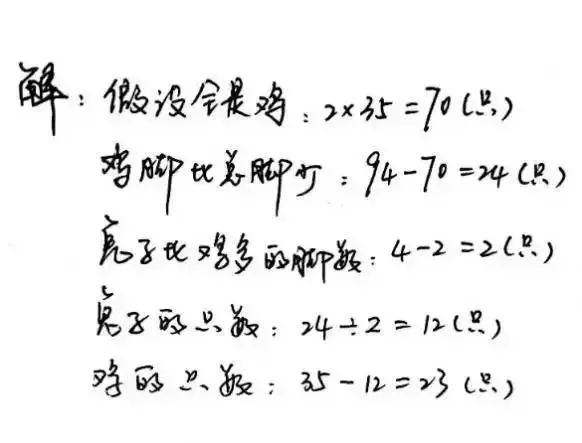 解：假设全是鸡：2×35=70(只)
鸡脚比总脚少：94-70=24(只)
兔子比鸡多的脚数：4-2=2(只)
兔子的只数：24÷2=12(只)
鸡的只数：35-12=23(只)